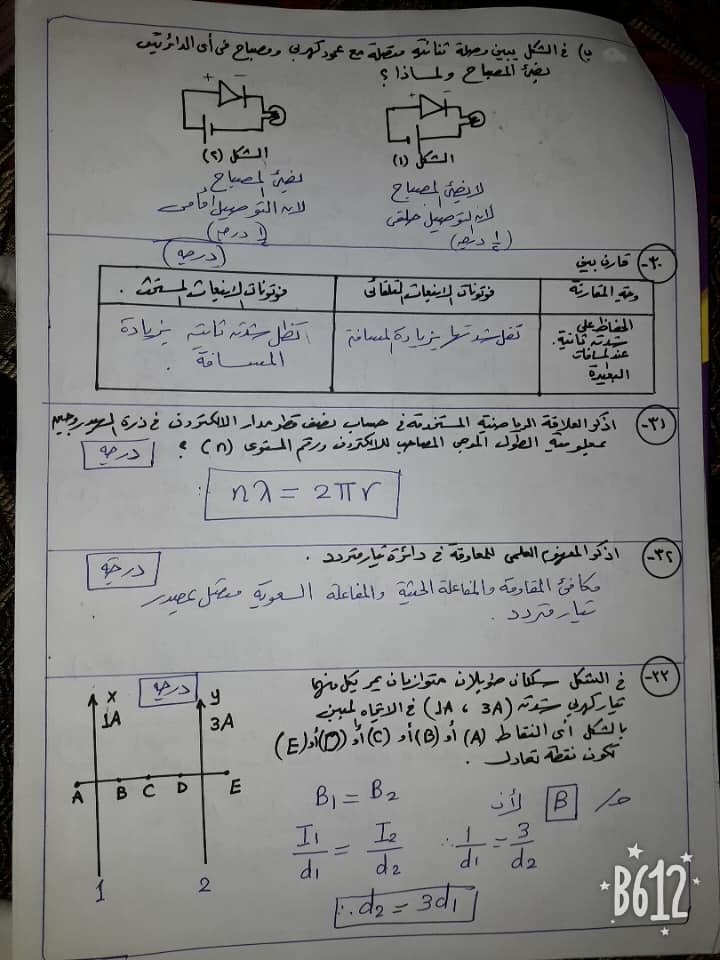 ب) فى الشكل يبين وصلة ثنائية متصلة مع عمود كهربى ومصباح فى أى الدائرتين
يضئ المصباح ولماذا ؟
+ −
+ −
الشكل (١)
الشكل (٢)
لا يضئ المصباح
لأن التوصيل خلفى
(½ درجة)
يضئ المصباح
لأن التوصيل أمامى
(½ درجة)
(درجة)
٣٠- قارن بين
وجه المقارنة
فوتونات الانبعاث التلقائى
فوتونات الانبعاث المستحث .
الحفاظ على
شدته ثابتة
عند لمسافات
البعيدة
تقل شدتها بزيادة المسافة
تظل شدته ثابته بزيادة
المسافة .
٣١- اذكر العلاقة الرياضية المستخدمة فى حساب نصف قطر مدار الالكترون فى ذرة الهيدروجين
بمعلومية الطول الموجى المصاحب للالكترون ورقم المستوى (n) ؟
درجة
nλ = 2πr
٣٢- اذكر المفهوم العلمى للمعاوقة فى دائرة تيار متردد .
درجة
مكافئ المقاومة والمفاعلة الحثية والمفاعلة السعوية متصل بمصدر
تيار متردد .
٣٣- فى الشكل سلكان طويلان متوازيان يمر بكل منهما
تيار كهربى شدته (1A ، 3A) فى الاتجاه المبين
بالشكل أى النقاط (A) أو (B) أو (C) أو (D) أو (E)
تكون نقطة تعادل .
درجة
x
1A
y
3A
A B C D E
1 2
حـ/ B لأن B₁ = B₂
I₁/d₁ = I₂/d₂
∴ 1/d₁ = 3/d₂
∴ d₂ = 3d₁
B612